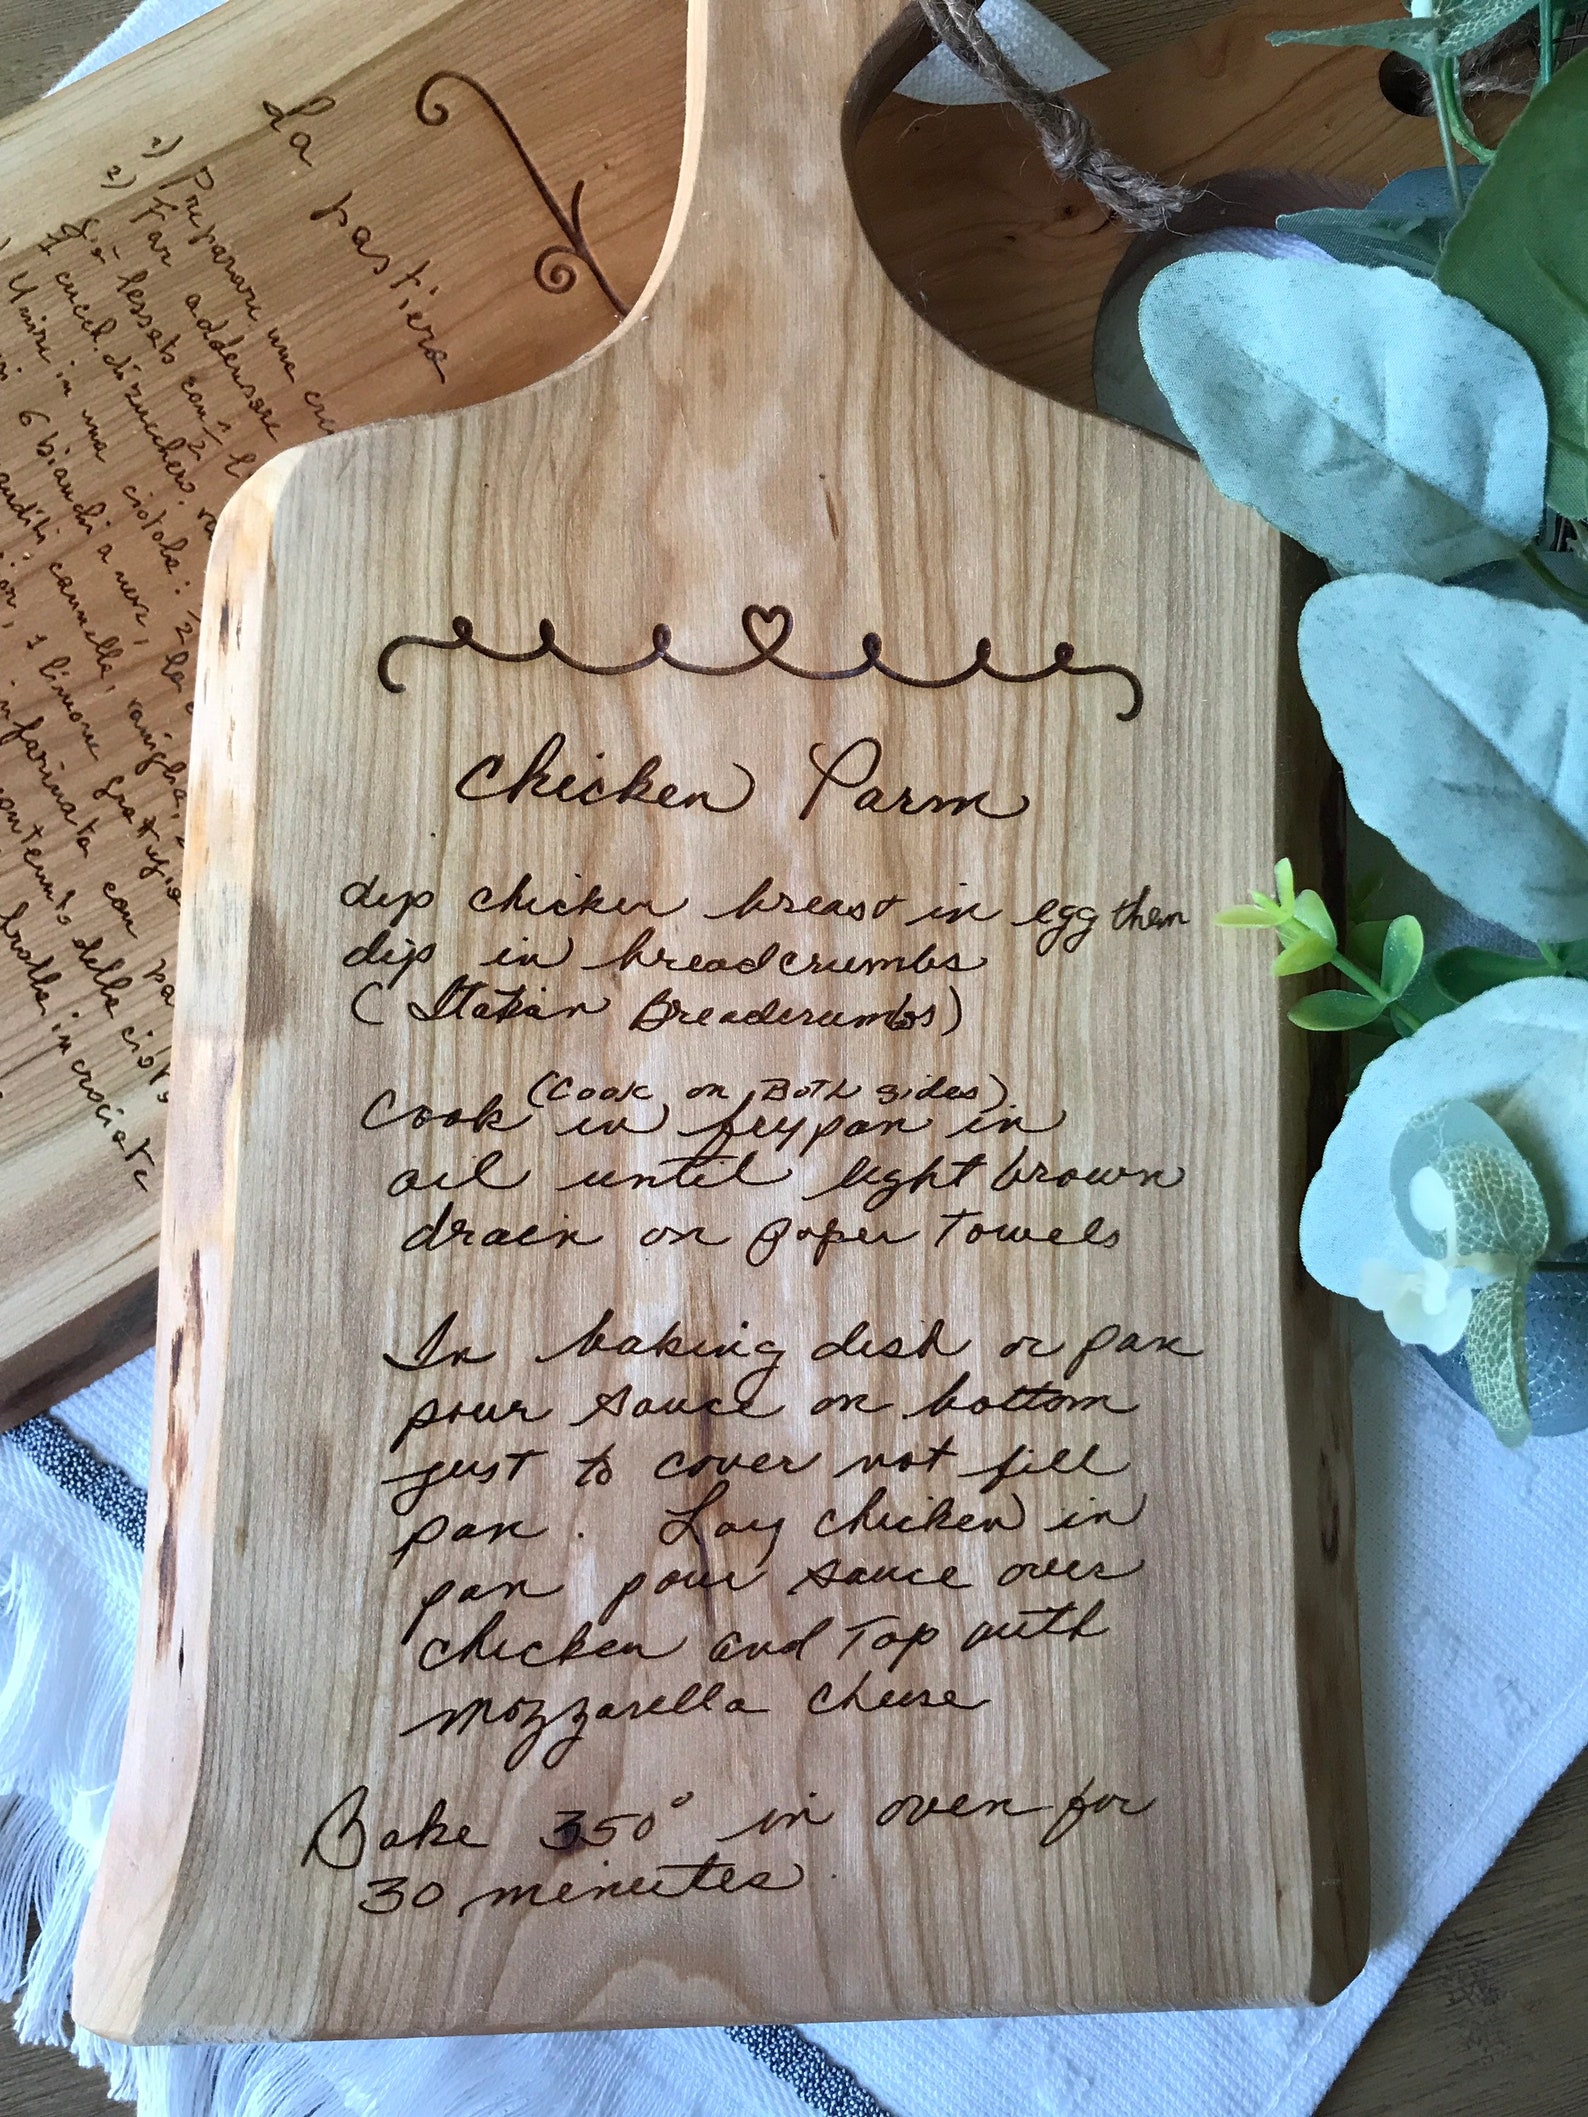 La pastiera
1) Preparare una
2) Far addensare
già lessato con 1/2 l
7 cucch. di zucchero.
Unire in una ciotola:
6 bianchi a neve,
canditi, cannella, vaniglia,
1 limone grattugia
infarinata con
contenuto della ciot
incrociate
Chicken Parm
dip chicken breast in egg then
dip in breadcrumbs
(Italian Breadcrumbs)
(Cook on Both sides)
Cook in frypan in
oil until light brown
drain on paper Towels
In baking dish or pan
pour sauce on bottom
just to cover not fill
pan. Lay chicken in
pan pour sauce over
chicken and Top with
mozzarella cheese
Bake 350° in oven for
30 minutes